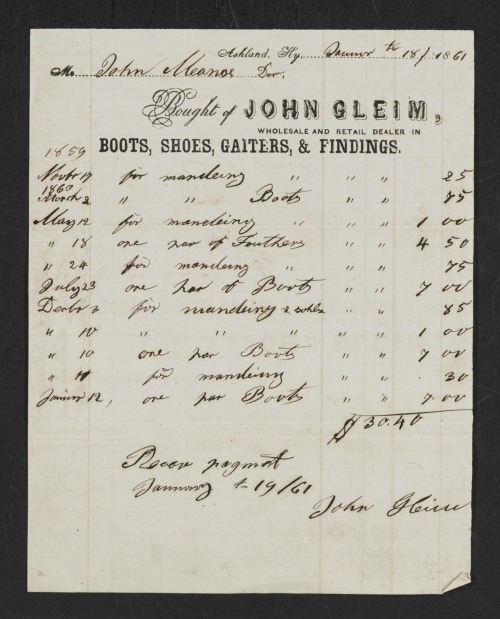 Ashland, Ky, Januar th 18/ 1861
Mr John Meanor Der,
Bought of JOHN GLEIM,
WHOLESALE AND RETAIL DEALER IN
BOOTS, SHOES, GAITERS, & FINDINGS.
1859
Novbr 17 for mandeing " " " 25
1860
March 2 " " Boots " " 75
May 12 for mandeing " " " 1 00
" 18 one par of Feathers " " 4 50
" 24 for mandeing " " " 75
July 23 one par of Boots " " 7 00
Decbr 3 for mandeing & sohls " " 85
" 10 " " " " " 1 00
" 10 one par Boots " " 7 00
" 11 for mandeing " " 30
Januar 12, one par Boots " " 7 00
$ 30.40
Recev pagmet
January th 19/61
John Gleim